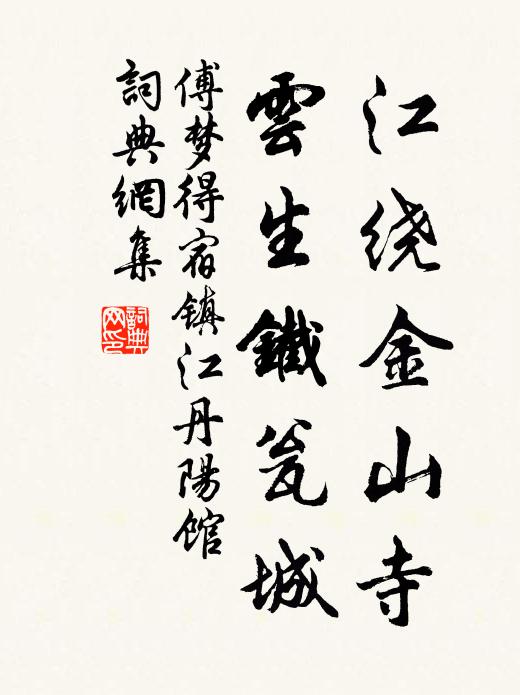 江绕金山寺
雲生鐵瓮城
傅梦得宿镇江丹陽馆
詞典網集
詞典网印